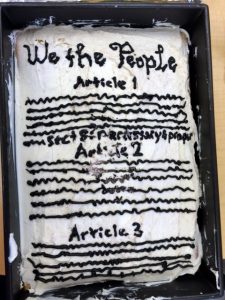 We the People
Article 1
sect 8:
Article 2
Article 3